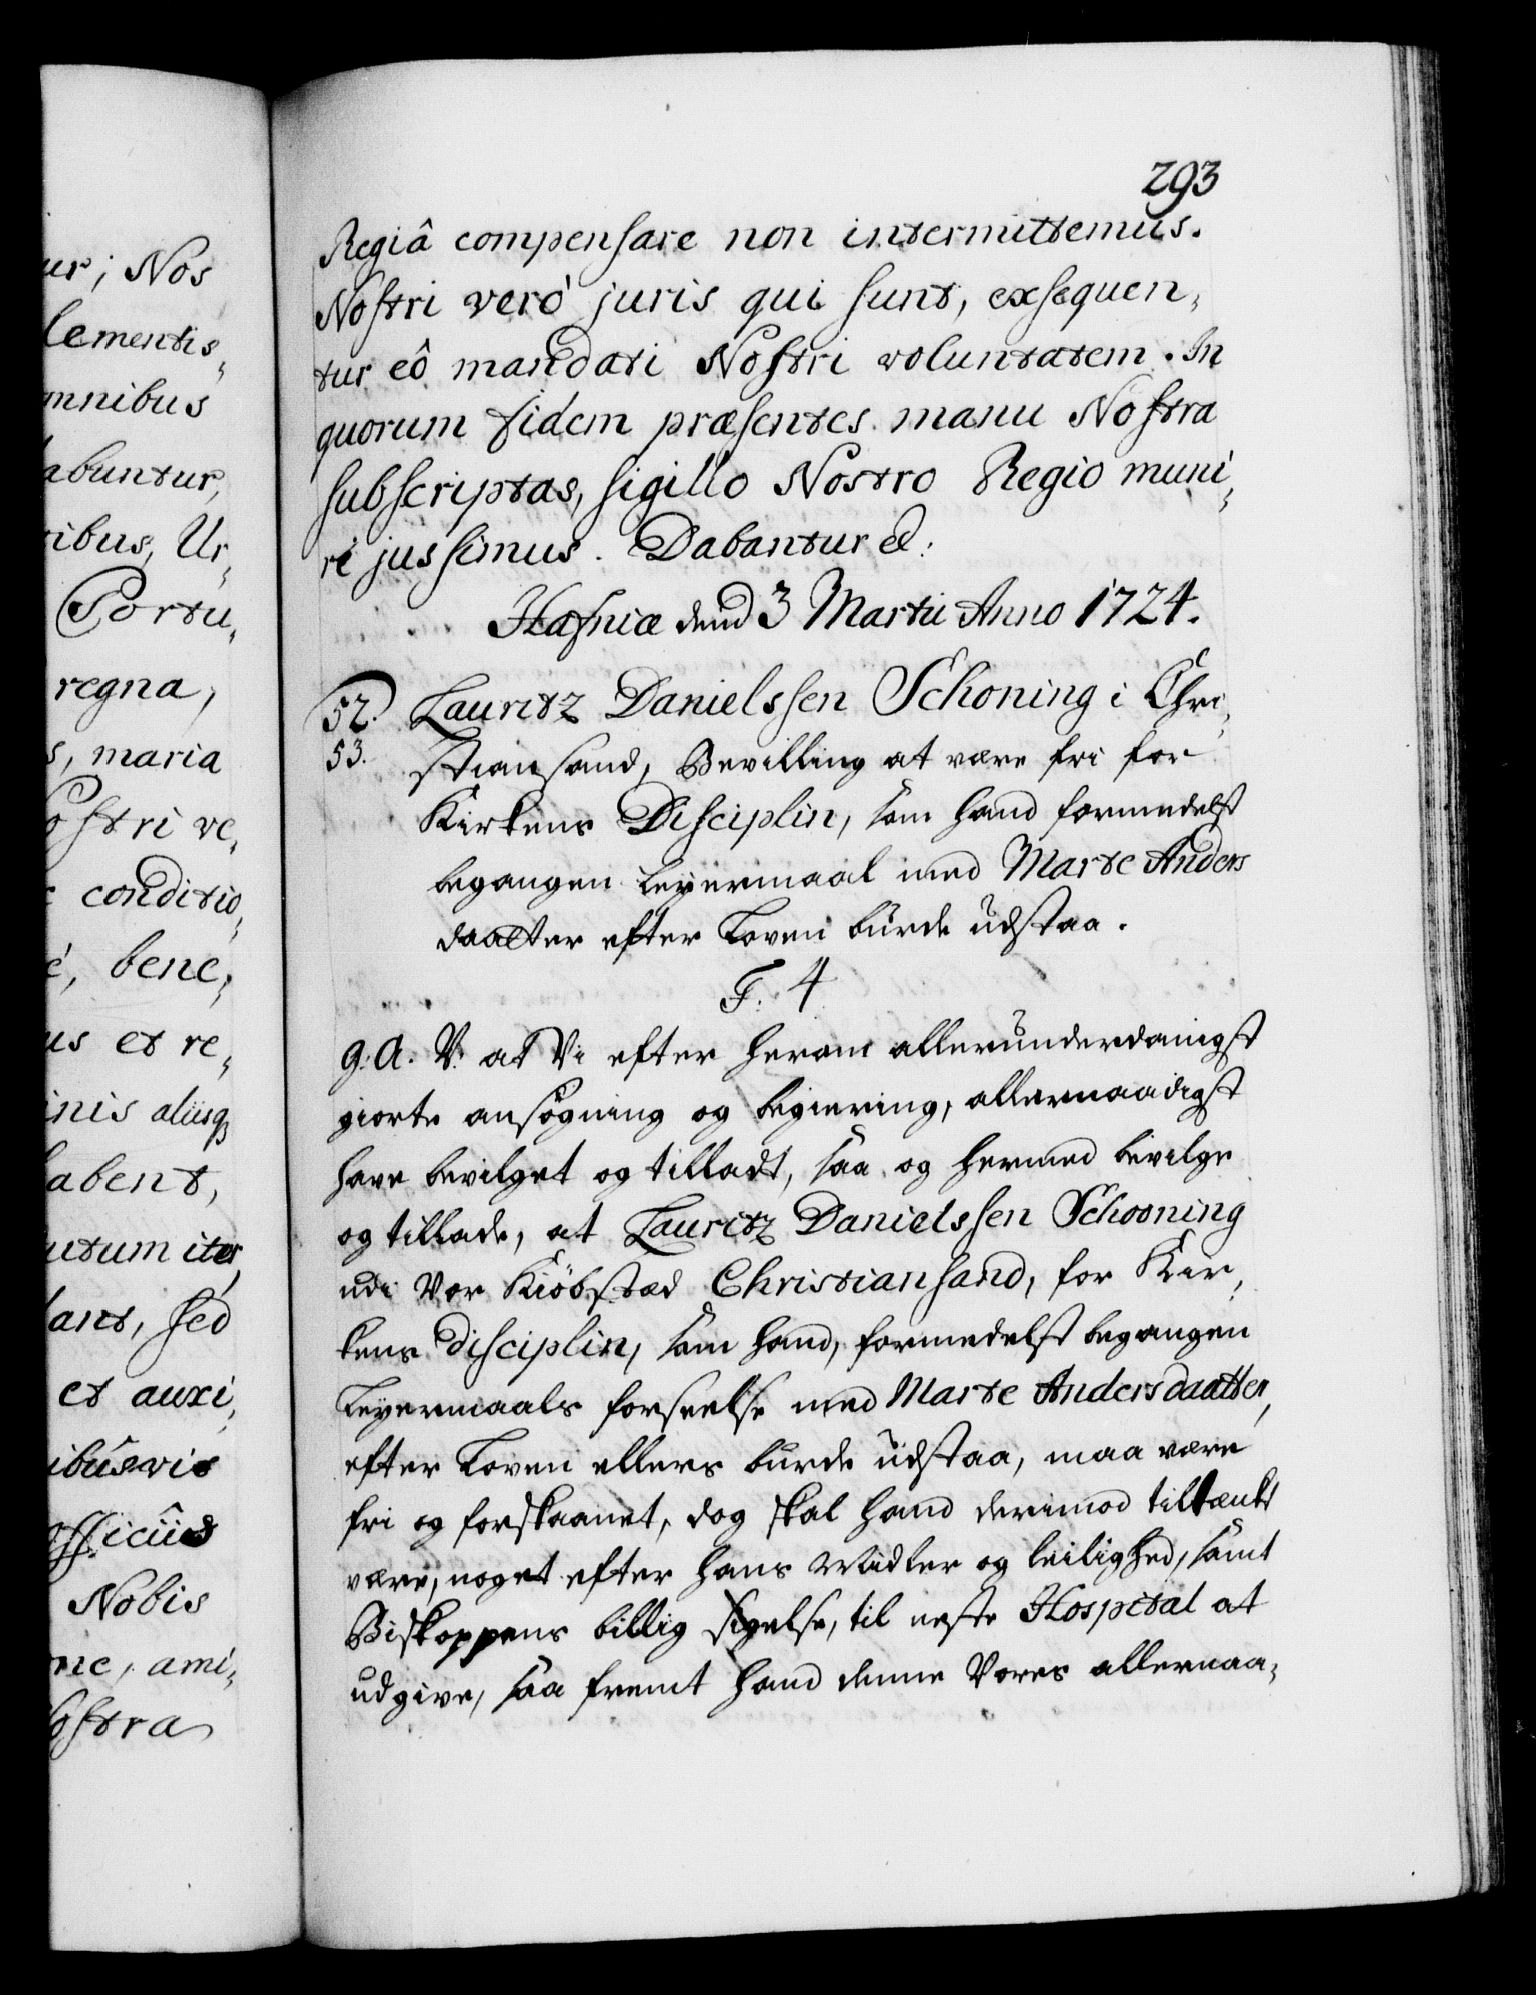 ur; Nos
lementis„
mnibus
abuntur,
ibus, Ur„
Portu„
regna,
s, maria
ostri ve„
conditio„
é, bene„
us et re„
inis aliisq
abent,
utum iter
ant, sed
et auxi„
ibusvis
officiis
Nobis
ne, ami„
ostra
293
Regiâ compensare non intermittemus.
Nostri verò juris qui sunt, exsequen„
tur eô mandati Nostri voluntatem. In
quorum fidem præsentes manu Nostra
subscriptas, sigillo Nostro Regio muni„
ri jussimus. Dabantur et:
Hafniæ dend 3 Martii Anno 1724.
52. Lauritz Danielssen Schoning i Chri„
53. stiansand, Bevilling at være fri for
Kirkens Disciplin, som hand formedelst
begangen Leyermaal med Marte Anders
daatter efter Loven burde udstaa.
F. 4
G. A. V. at Vi efter herom allerunderdanigst
giorte ansøgning og begiering, allernaadigst
have bevilget og tilladt, saa og hermed bevilge
og tillade, at Lauritz Danielssen Schooning
udi Vor Kiöbstæd Christiansand, for Kir„
kens Disciplin, som hand, formedelst begangen
Leyermaals forseelse med Marte Andersdaatter,
efter Loven ellers burde udstaa, maa være
fri og forskaanet, dog skal hand derimod tiltænkt
være, noget efter hans Midler og leilighed, samt
Biskoppens billig sigelse, til neste Hospital at
udgive, saa fremt hand denne Vores allernaa„